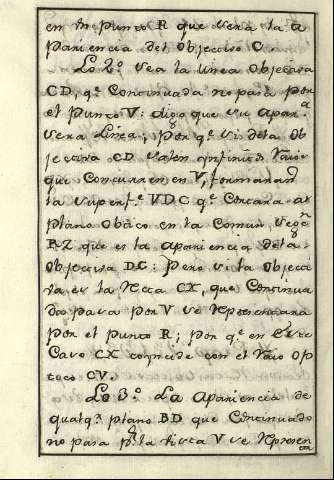 en un punto R que vera la a
pariencia del objectivo C
Lo 2º sea la linea objectiva
CD, q.e continuada no pasa por
el punto V: digo que su apar.a
sera linea; por q.e si dela ob
jectiva CD salen infinitos raios
que concurren en V, formaran
la superf.e VDC q.e cortara al
plano obtico en la comun seg.n
RZ que es la apariencia dela
objectiva DC: Pero si la objecti
va es la recta CX, que continua
da pasa por V se representara
por el punto R; por q.e en este
caso CX coyncide con el raio op
tico CV.
Lo 3º La apariencia de
qualq.r plano BD que continuado
no pasa p.r la vista V se represen